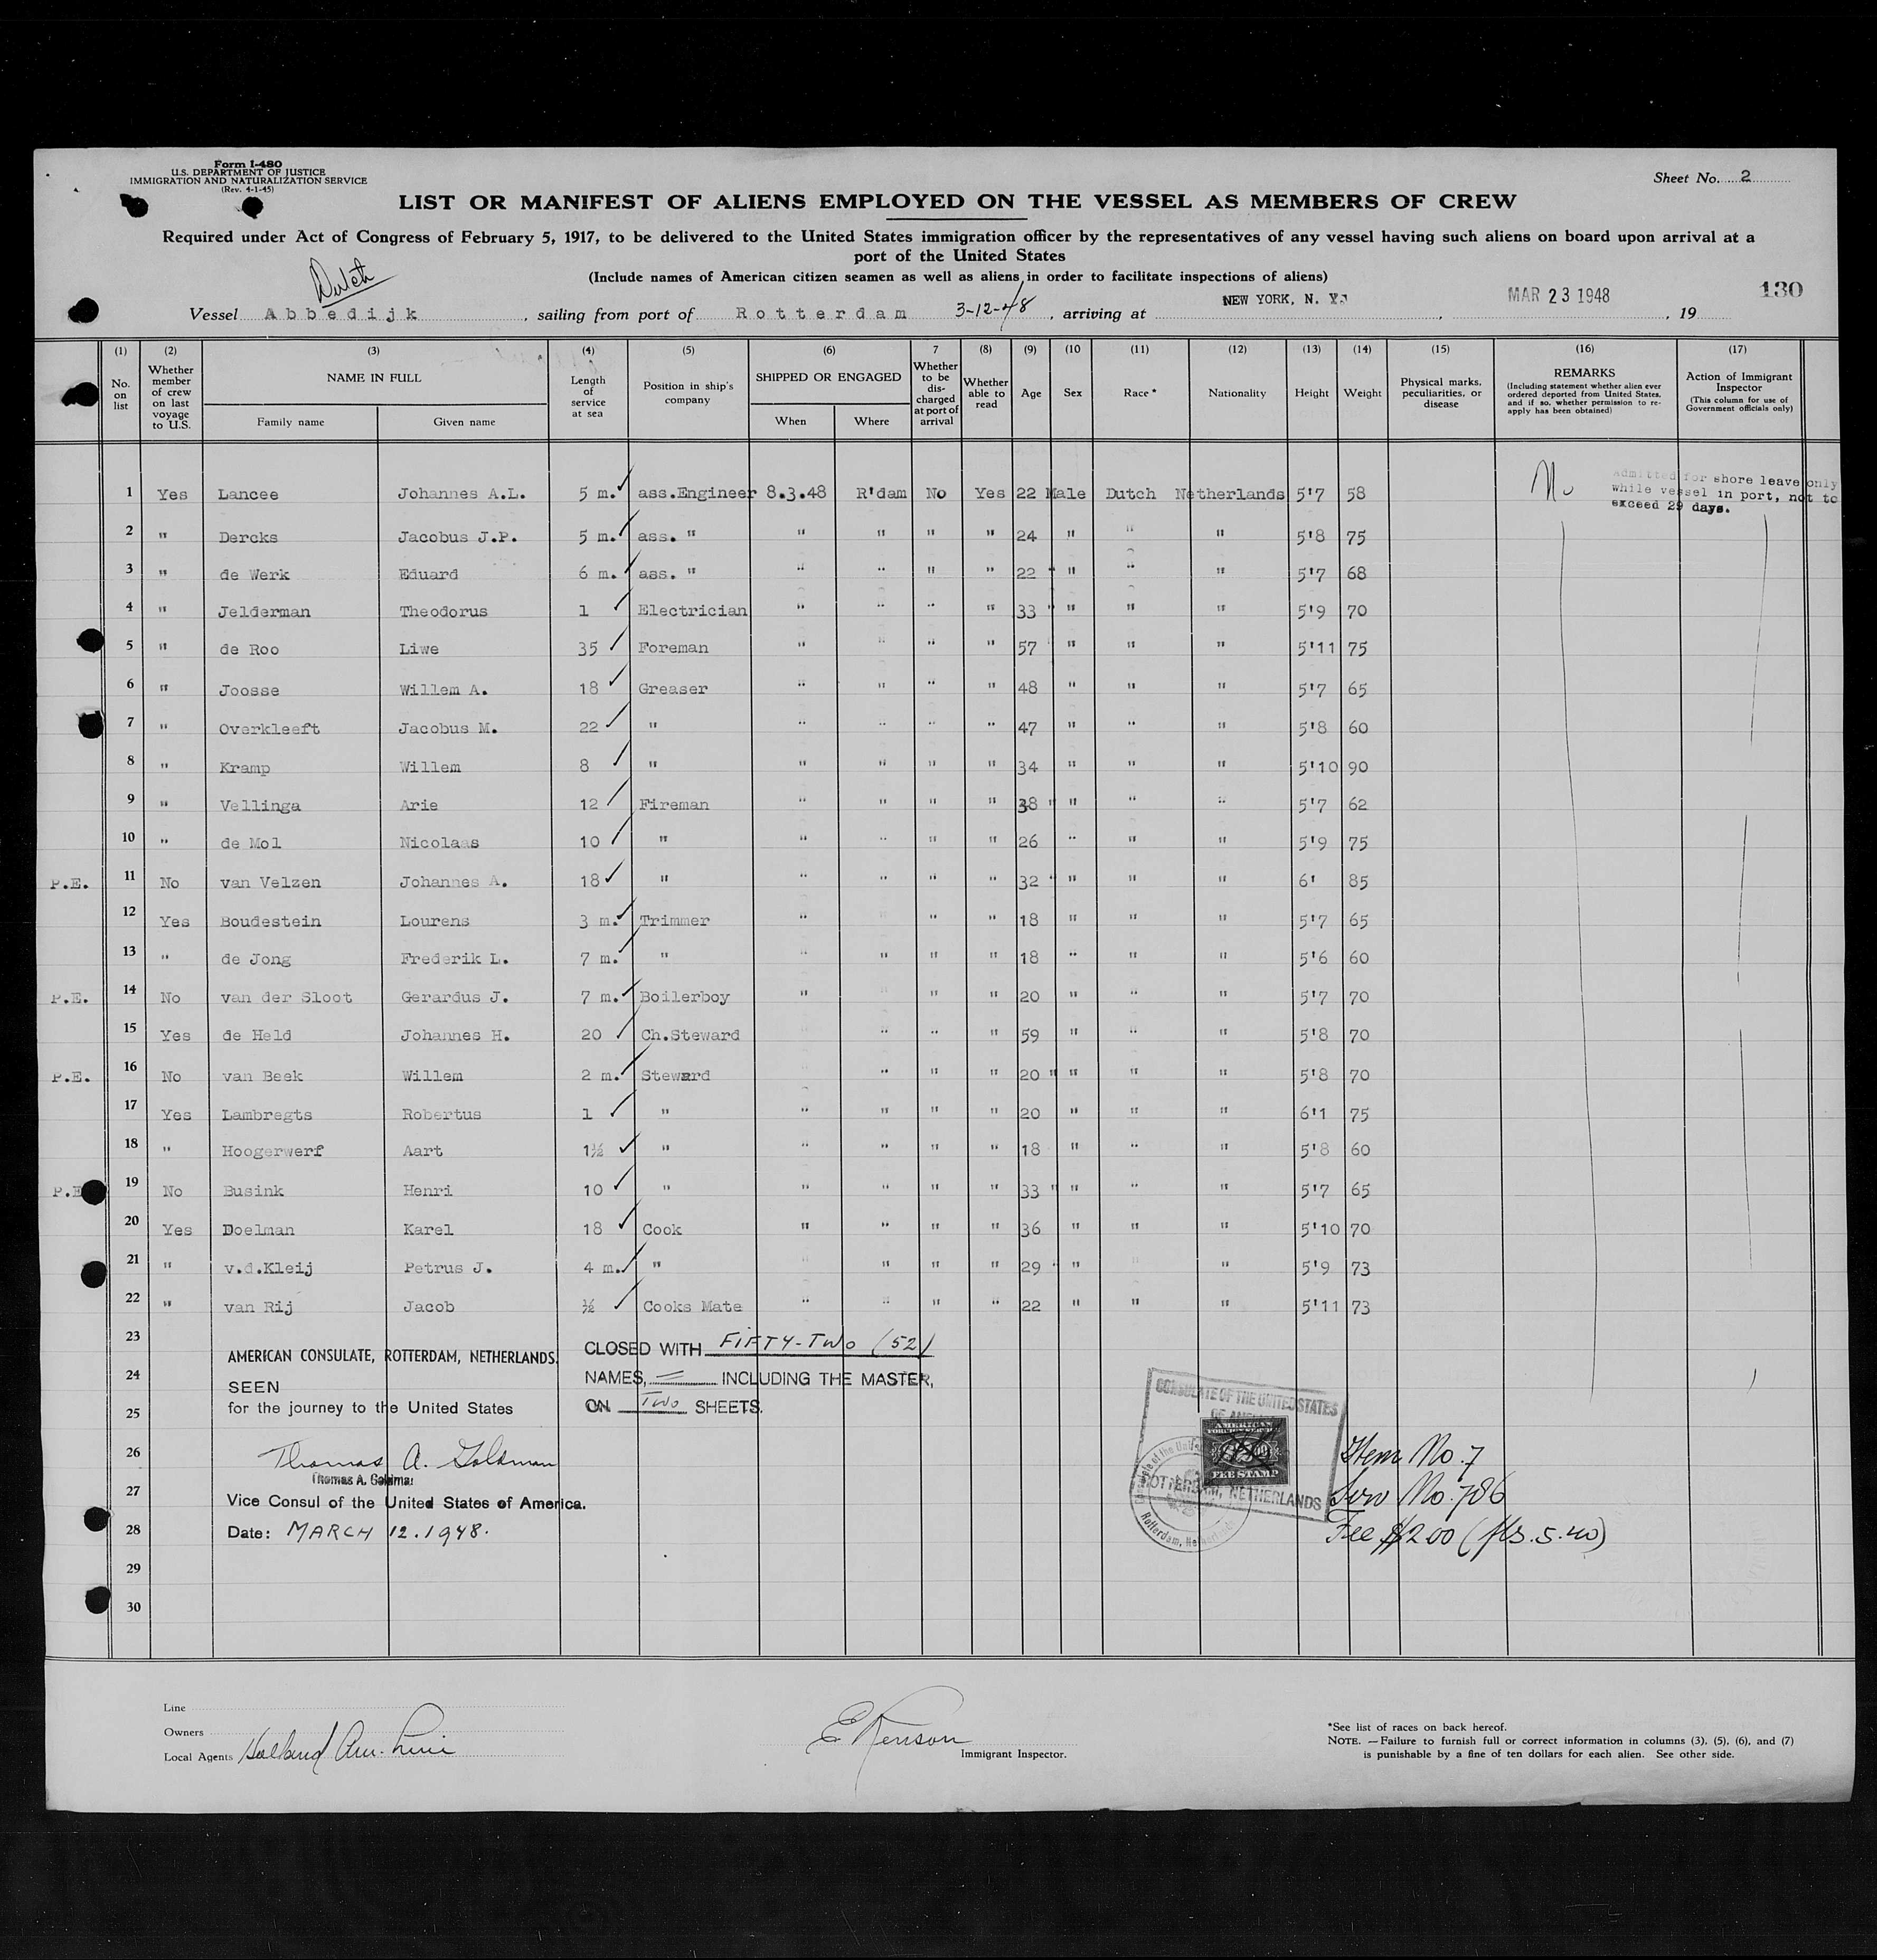 Form I-480
U.S. DEPARTMENT OF JUSTICE
IMMIGRATION AND NATURALIZATION SERVICE
(Rev. 4-1-45)
Sheet No. 2
LIST OR MANIFEST OF ALIENS EMPLOYED ON THE VESSEL AS MEMBERS OF CREW
Required under Act of Congress of February 5, 1917, to be delivered to the United States immigration officer by the representatives of any vessel having such aliens on board upon arrival at a
port of the United States
(Include names of American citizen seamen as well as aliens in order to facilitate inspections of aliens)
Dutch
130
Vessel Abbedijk, sailing from port of Rotterdam 3-12-48, arriving at NEW YORK, N. Y., MAR 23 1948, 19
(1) (2) (3) (4) (5) (6) 7 (8) (9) (10 (11) (12) (13) (14) (15) (16) (17)
No. on list
Whether member of crew on last voyage to U.S.
NAME IN FULL
Family name Given name
Length of service at sea
Position in ship's company
SHIPPED OR ENGAGED
When Where
Whether to be dis-charged at port of arrival
Whether able to read
Age Sex Race * Nationality Height Weight
Physical marks, peculiarities, or disease
REMARKS
(Including statement whether alien ever ordered deported from United States, and if so, whether permission to re-apply has been obtained)
Action of Immigrant Inspector
(This column for use of Government officials only)
1 Yes Lancee Johannes A.L. 5 m. ass.Engineer 8.3.48 R'dam No Yes 22 Male Dutch Netherlands 5'7 58 No
Admitted for shore leave only
while vessel in port, not to
exceed 29 days.
2 " Dercks Jacobus J.P. 5 m. ass. " " " " " 24 " " " 5'8 75
3 " de Werk Eduard 6 m. ass. " " " " " 22 " " " 5'7 68
4 " Jelderman Theodorus 1 Electrician " " " " 33 " " " 5'9 70
5 " de Roo Liwe 35 Foreman " " " " 57 " " " 5'11 75
6 " Joosse Willem A. 18 Greaser " " " " 48 " " " 5'7 65
7 " Overkleeft Jacobus M. 22 " " " " " 47 " " " 5'8 60
8 " Kramp Willem 8 " " " " " 34 " " " 5'10 90
9 " Vellinga Arie 12 Fireman " " " " 38 " " " 5'7 62
10 " de Mol Nicolaas 10 " " " " " 26 " " " 5'9 75
P.E. 11 No van Velzen Johannes A. 18 " " " " " 32 " " " 6' 85
12 Yes Boudestein Lourens 3 m. Trimmer " " " " 18 " " " 5'7 65
13 " de Jong Frederik L. 7 m. " " " " " 18 " " " 5'6 60
P.E. 14 No van der Sloot Gerardus J. 7 m. Boilerboy " " " " 20 " " " 5'7 70
15 Yes de Held Johannes H. 20 Ch.Steward " " " " 59 " " " 5'8 70
P.E. 16 No van Beek Willem 2 m. Steward " " " " 20 " " " 5'8 70
17 Yes Lambregts Robertus 1 " " " " " 20 " " " 6'1 75
18 " Hoogerwerf Aart 1½ " " " " " 18 " " " 5'8 60
P.E 19 No Busink Henri 10 " " " " " 33 " " " 5'7 65
20 Yes Doelman Karel 18 Cook " " " " 36 " " " 5'10 70
21 " v.d.Kleij Petrus J. 4 m. " " " " " 29 " " " 5'9 73
22 " van Rij Jacob ½ Cooks Mate " " " " 22 " " " 5'11 73
23
24
25
26
27
28
29
30
AMERICAN CONSULATE, ROTTERDAM, NETHERLANDS.
SEEN
for the journey to the United States
Thomas A. Goldman
Thomas A. Goldman
Vice Consul of the United States of America.
Date: MARCH 12. 1948.
CLOSED WITH FIFTY-TWO (52)
NAMES, INCLUDING THE MASTER,
ON TWO SHEETS.
CONSULATE OF THE UNITED STATES
OF AMERICA
AMERICAN
FOREIGN SERVICE
FEE STAMP
ROTTERDAM, NETHERLANDS
Rotterdam, Netherlands
Item No. 7
Serv No. 786
Fee $2.00 (fls. 5.40)
Line
Owners
Local Agents Holland Am. Line
E Kenson
Immigrant Inspector.
*See list of races on back hereof.
NOTE. — Failure to furnish full or correct information in columns (3), (5), (6), and (7)
is punishable by a fine of ten dollars for each alien. See other side.